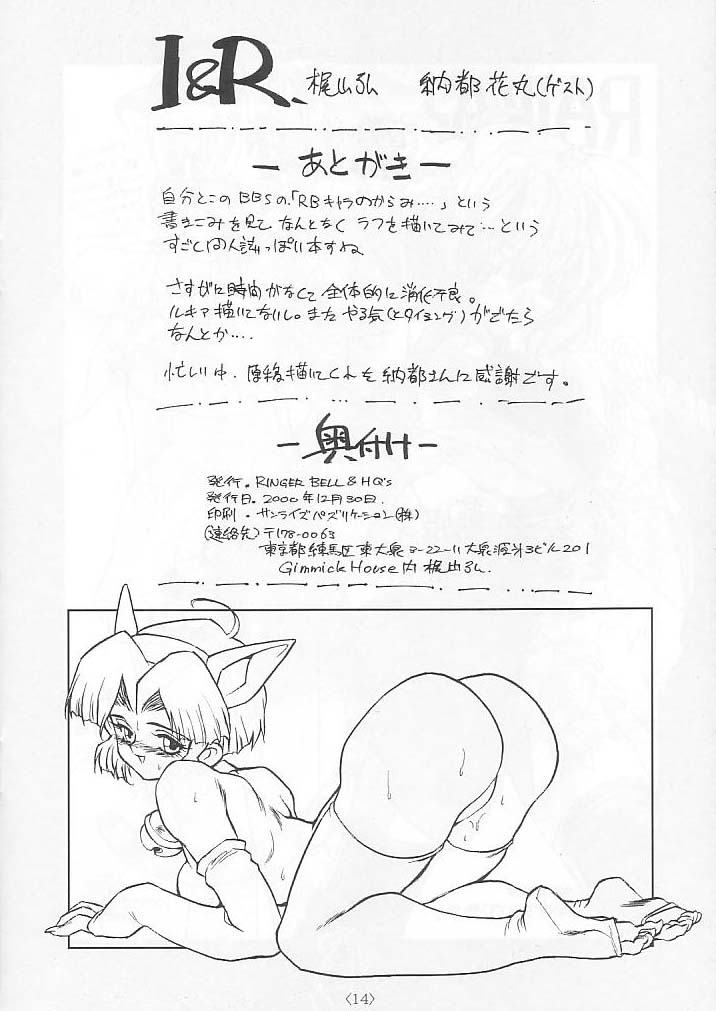 I&R、 梶山弘 納都花丸(ゲスト)
ーあとがきー
自分とこのBBSの、「RBキャラのからみ‥‥」という
書きこみを見て なんとなく ラフを描いてみて…という
すごく同人誌っぽい本すね
さすがに時間がなくて 全体的に消化不良。
ルキア描いてないし。また やる気(とタイミング)がでたら
なんとか‥‥
忙しい中、原稿描いてくれた 納都さんに感謝です。
ー奥付けー
発行. RINGER BELL & HQ's
発行日. 2000年12月30日.
印刷・サンライズパブリケーション(株)
(連絡先)〒178-0063
東京都練馬区東大泉3-22-11 大泉 ビル201
Gimmick House内 梶山弘.
〈14〉